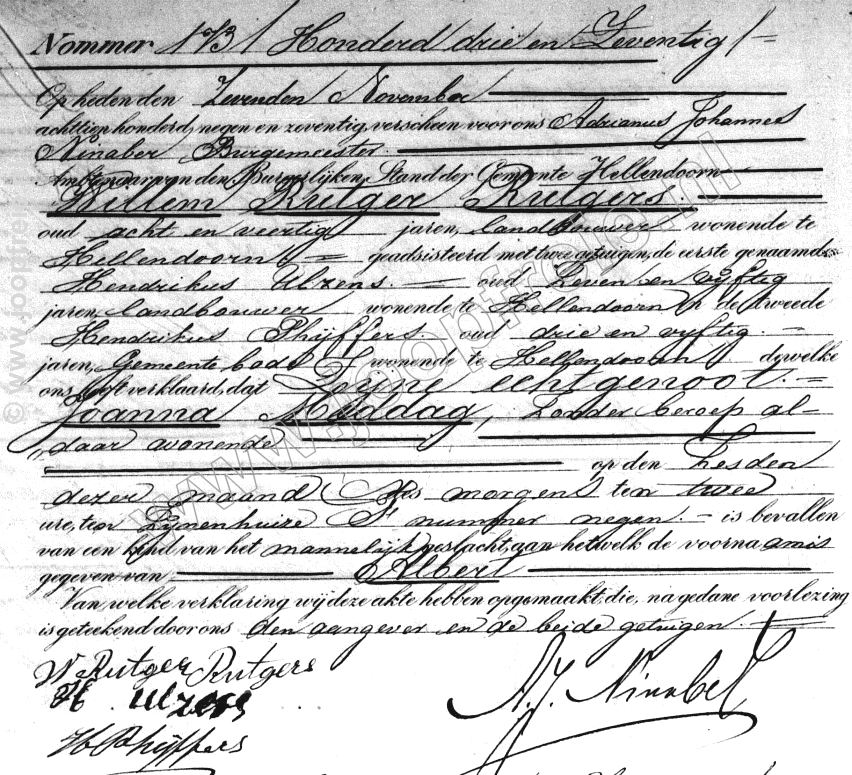 Nommer 173 / Honderd drie en Zeventig /
Op heden den Zevenden November
achttien honderd, negen en zeventig, verscheen voor ons Adrianus Johannes
Ninaber Burgemeester
Ambtenaar van den Burgerlijken Stand der Gemeente Hellendoorn
Willem Rutger Rutgers.
oud acht en veertig jaren, landbouwer wonende te
Hellendoorn geadsisteerd met twee getuigen, de eerste genaamd
Hendrikus Ulzens. oud Zeven en vyftig
jaren, landbouwer wonende te Hellendoorn en de tweede
Hendrikus Phijffers. oud drie en vyftig.
jaren, Gemeente bode wonende te Hellendoorn dewelke
ons heeft verklaard, dat Zijne echtgenoot.
Joanna Meddag, Zonder beroep al-
„daar wonende
op den Zesden
dezer maand des morgens ten twee
ure, ten Zijnenhuize nummer negen. is bevallen
van een kind van het mannelijk geslacht, aan hetwelk de voornaam is
gegeven van Albert
Van welke verklaring wij deze akte hebben opgemaakt, die, na gedane voorlezing
is geteekend door ons den aangever en de beide getuigen.
W Rutger Rutgers
H Ulzens
A. J. Ninaber
H Phijffers
© www.joopfrei
www.joopfrolo.nl